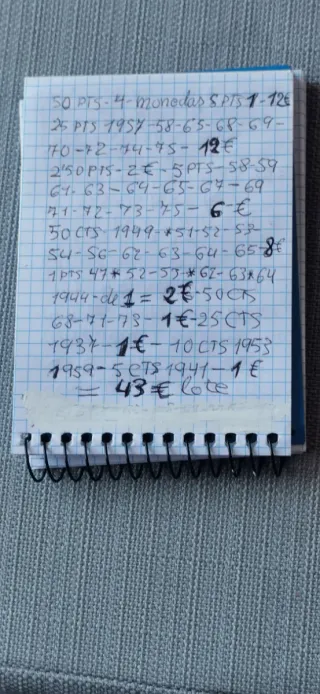 50 PTS - 4 - monedas 5 PTS 1 - 12€
25 PTS 1957 - 58 - 65 - 68 - 69 -
70 - 72 - 74 - 75 - 12€
2'50 PTS - 2€ - 5 PTS - 58 - 59
61 - 63 - 64 - 65 - 67 - 69
71 - 72 - 73 - 75 - 6 €
50 CTS - 1949 - *51 - 52 - 53 -
54 - 56 - 62 - 63 - 64 - 65 - 8€
1 PTS 47* 52 - 53 - * 62 - 63* 64
1944 - de 1 = 2€ - 50 CTS
68 - 71 - 73 - 1€ - 25 CTS
1937 - 1€ - 10 CTS 1953
1959 - 5 CTS 1941 - 1 €
= 43€ lote